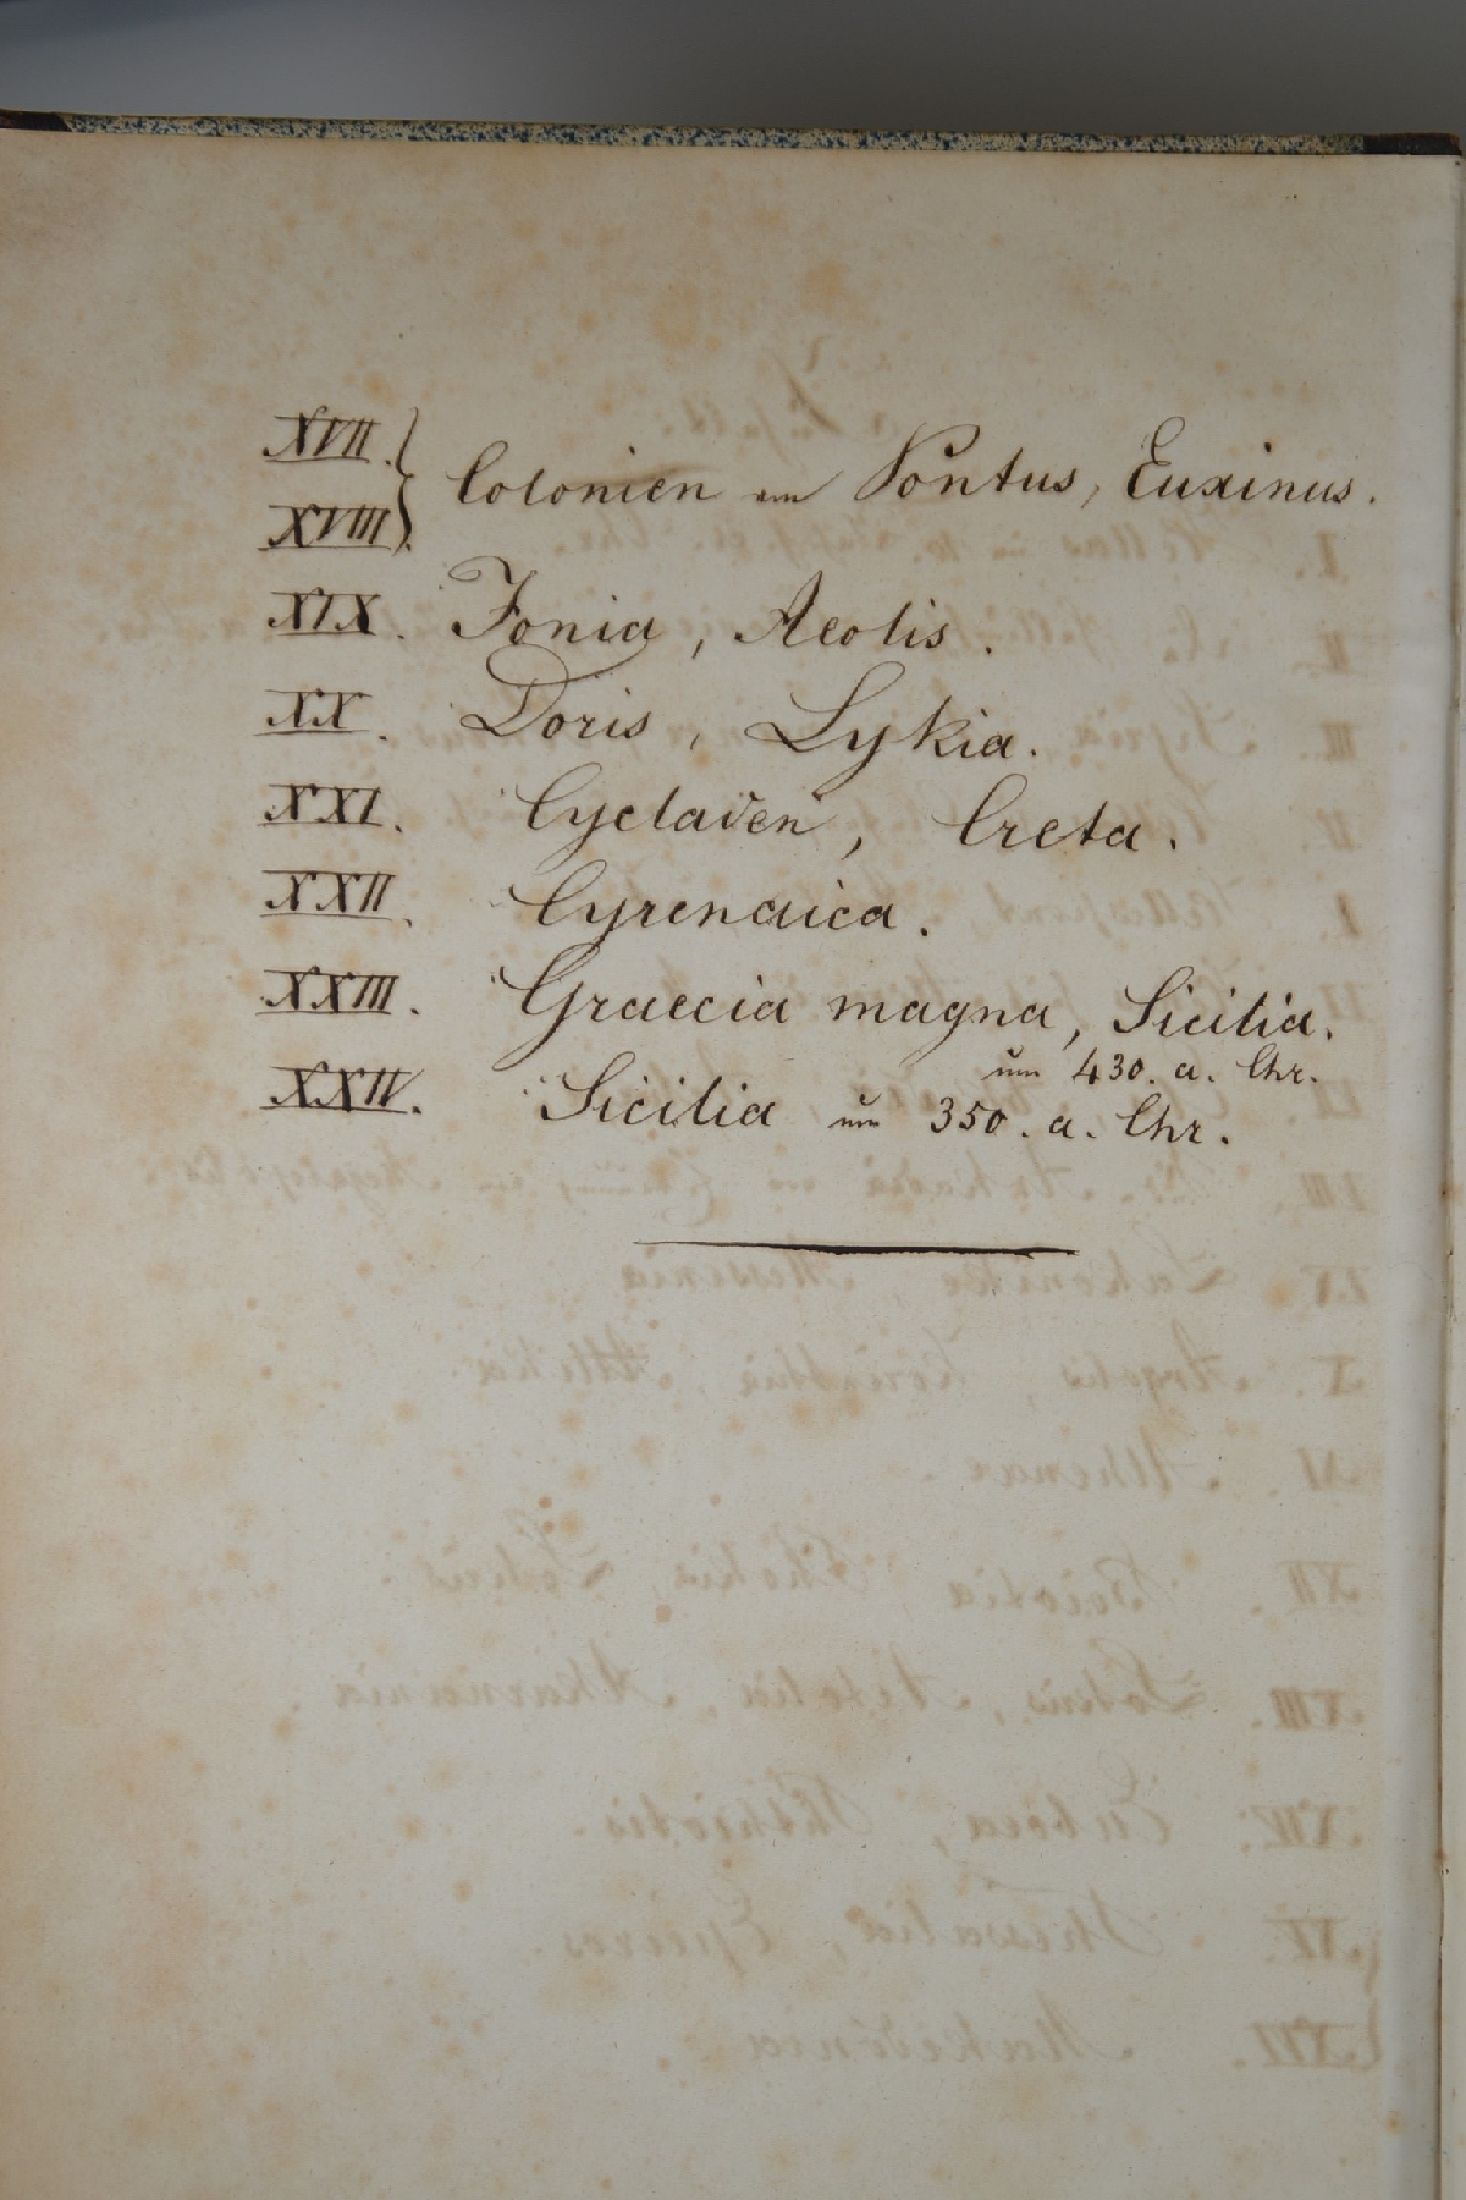 XVII.
Colonien am Pontus, Euxinus.
XVIII.
XIX. Ionia, Aeolis.
XX. Doris, Lykia.
XXI. Cycladen, Creta.
XXII. Cyrenaica.
XXIII. Graecia magna, Sicilia.
um 430. a. Chr.
XXIV. Sicilia um 350. a. Chr.